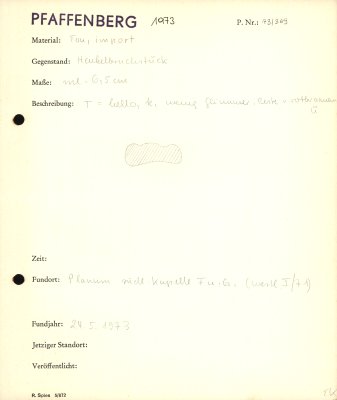 PFAFFENBERG 1973 P. Nr.: 73/369
Material: Ton, import
Gegenstand: Henkelbruchstück
Maße: ml - 6,5 cm
Beschreibung: T = hell, k, wenig Glimmer,
Zeit:
Fundort: Planum südl Kapelle F u. G.
Fundjahr: 24. 5. 1973
Jetziger Standort:
Veröffentlicht:
R. Spies 5/872